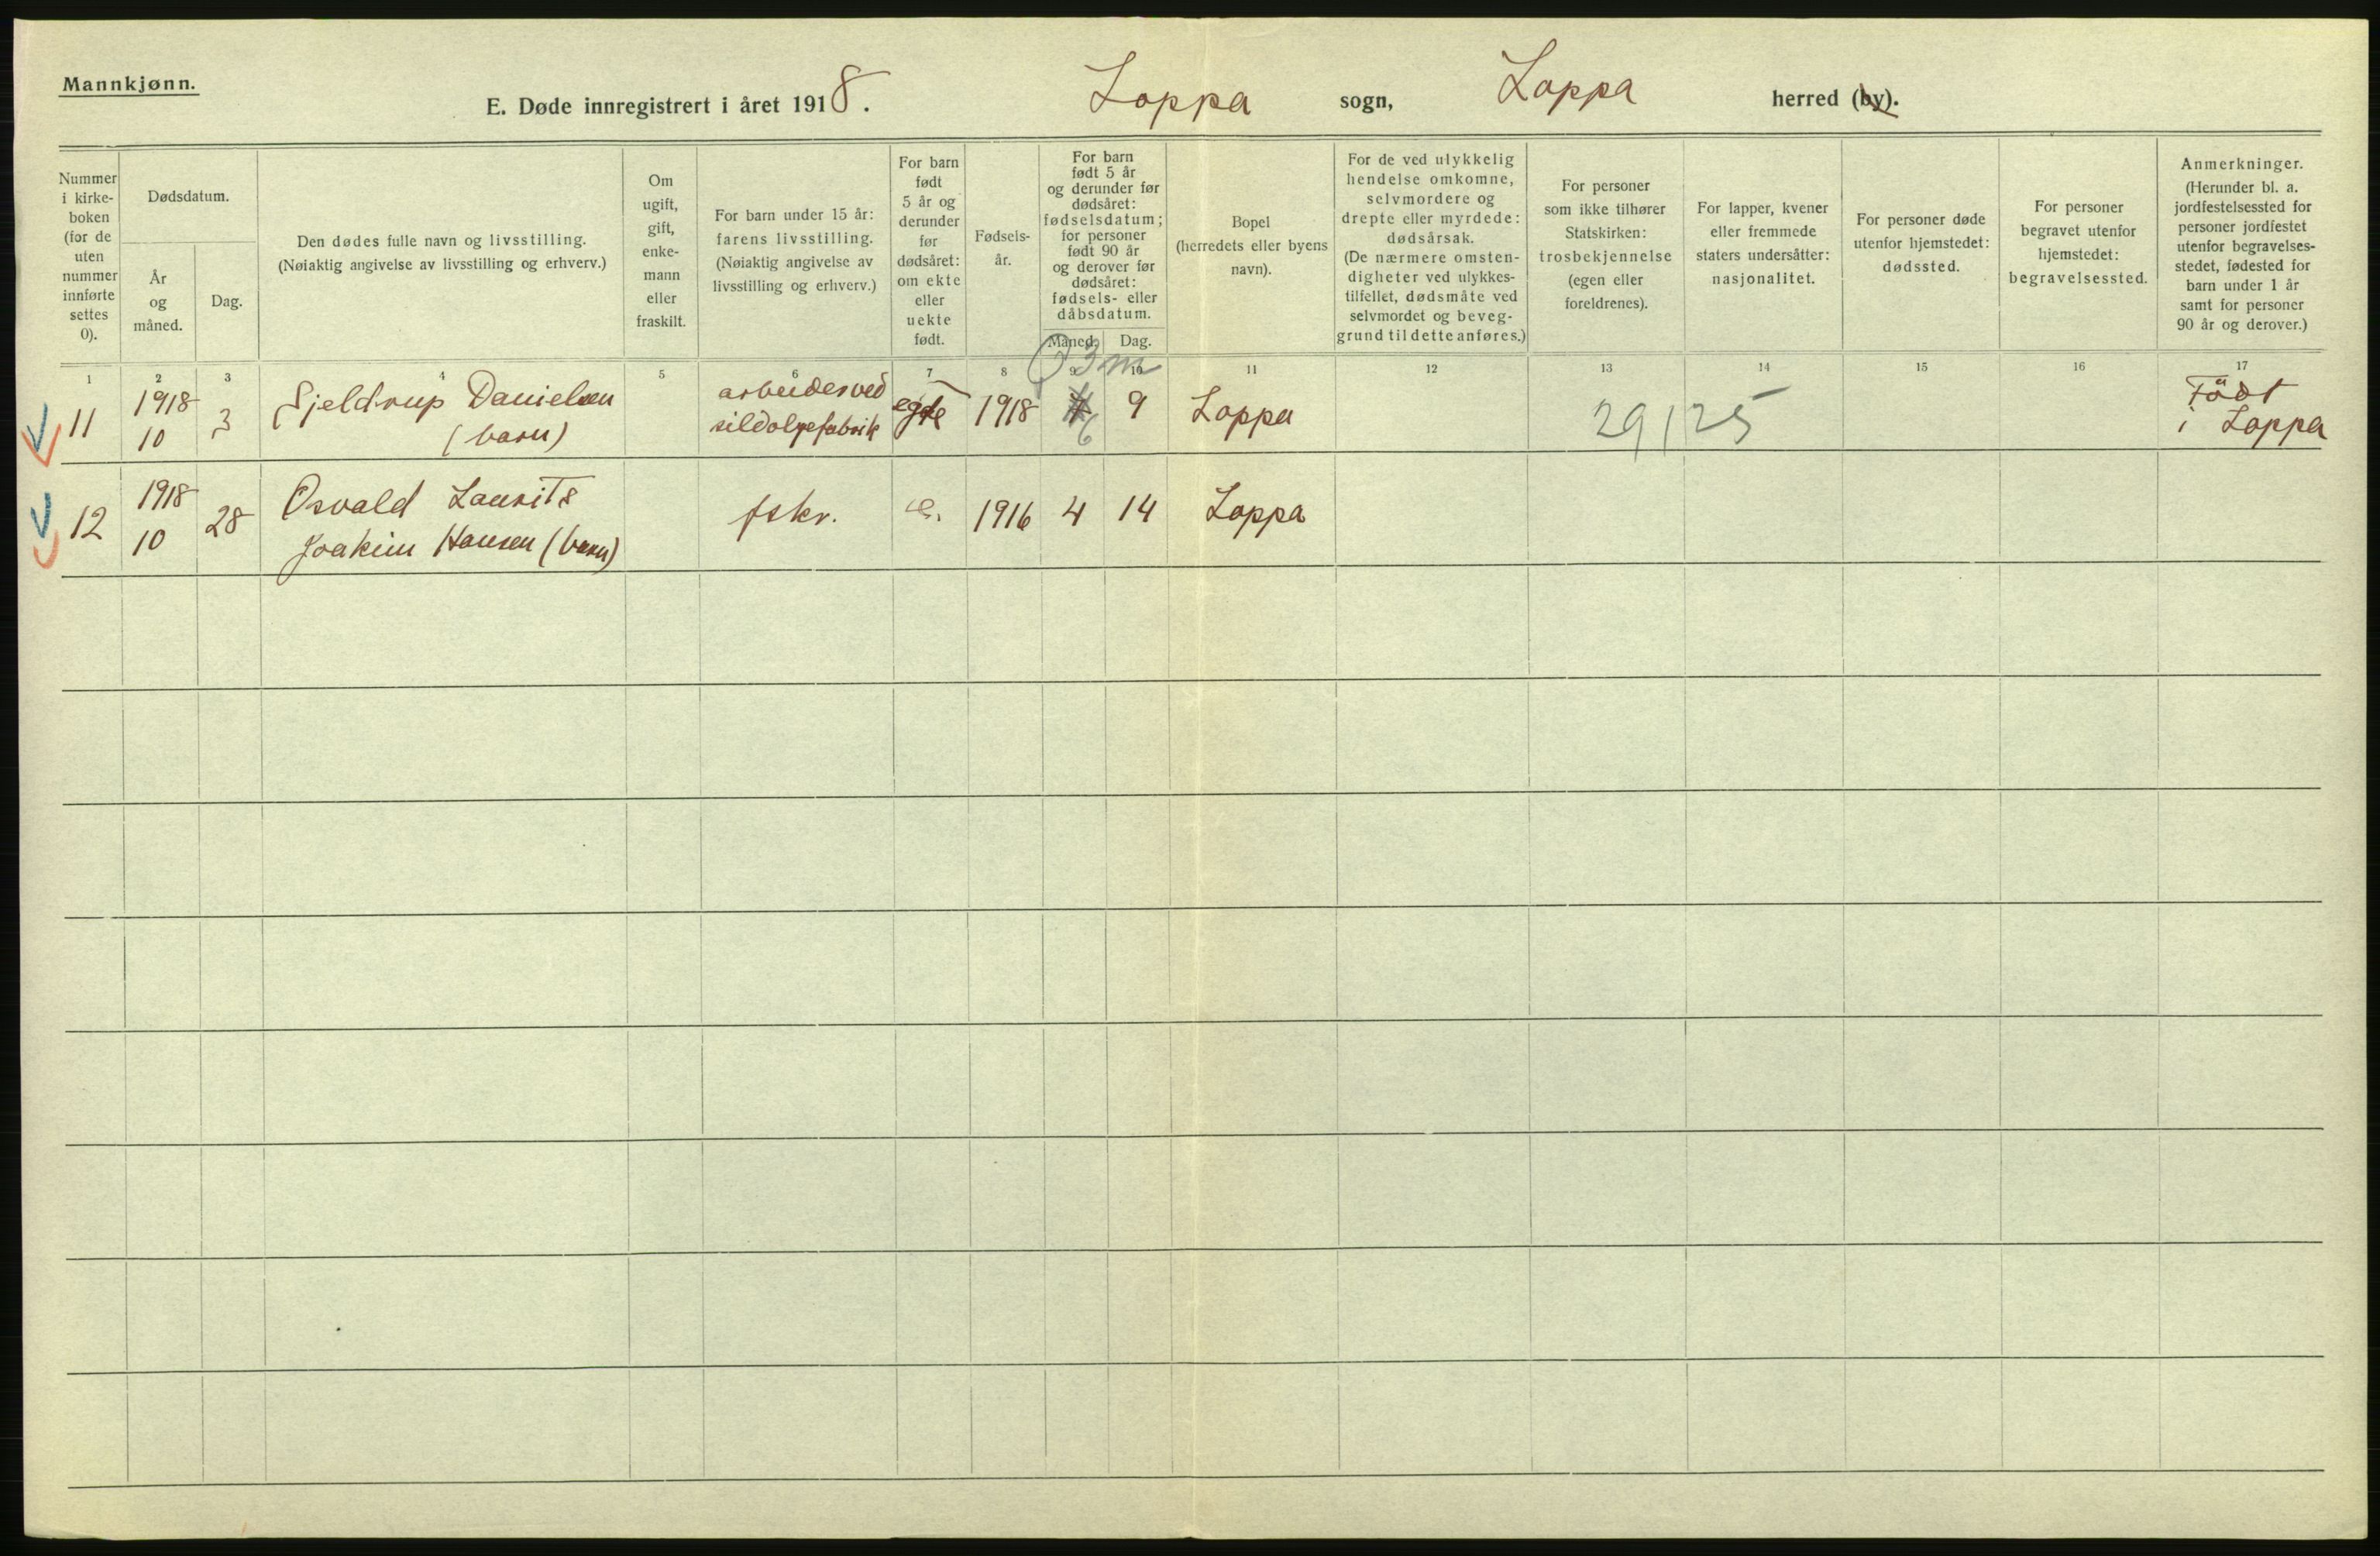 Mannkjønn.
E. Døde innregistrert i året 1918. Loppa sogn, Loppa herred (by).
Nummer
i kirke-
boken
(for de
uten
nummer
innførte
settes
0).
Dødsdatum.
År
og
måned.
Dag.
Den dødes fulle navn og livsstilling.
(Nøiaktig angivelse av livsstilling og erhverv.)
Om
ugift,
gift,
enke-
mann
eller
fraskilt.
For barn under 15 år:
farens livsstilling.
(Nøiaktig angivelse av
livsstilling og erhverv.)
For barn
født
5 år og
derunder
før
dødsåret:
om ekte
eller
uekte
født.
Fødsels-
år.
For barn
født 5 år
og derunder før
dødsåret:
fødselsdatum;
for personer
født 90 år
og derover før
dødsåret:
fødsels- eller
dåbsdatum.
Måned. Dag.
Bopel
(herredets eller byens
navn).
For de ved ulykkelig
hendelse omkomne,
selvmordere og
drepte eller myrdede:
dødsårsak.
(De nærmere omsten-
digheter ved ulykkes-
tilfellet, dødsmåte ved
selvmordet og beveg-
grund til dette anføres.)
For personer
som ikke tilhører
Statskirken:
trosbekjennelse
(egen eller
foreldrenes).
For lapper, kvener
eller fremmede
staters undersåtter:
nasjonalitet.
For personer døde
utenfor hjemstedet:
dødssted.
For personer
begravet utenfor
hjemstedet:
begravelsessted.
Anmerkninger.
(Herunder bl. a.
jordfestelsessted for
personer jordfestet
utenfor begravelses-
stedet, fødested for
barn under 1 år
samt for personer
90 år og derover.)
1 2 3 4 5 6 7 8 9 10 11 12 13 14 15 16 17
3 m
11 1918 10 3 Gjeldrup Danielsen (barn) arbeider ved sildolgefabrik egte 1918 6 9 Loppa 29/25 Född i Loppa
12 1918 10 28 Osvald Laurits Joakim Hansen (barn) fskr. e. 1916 4 14 Loppa